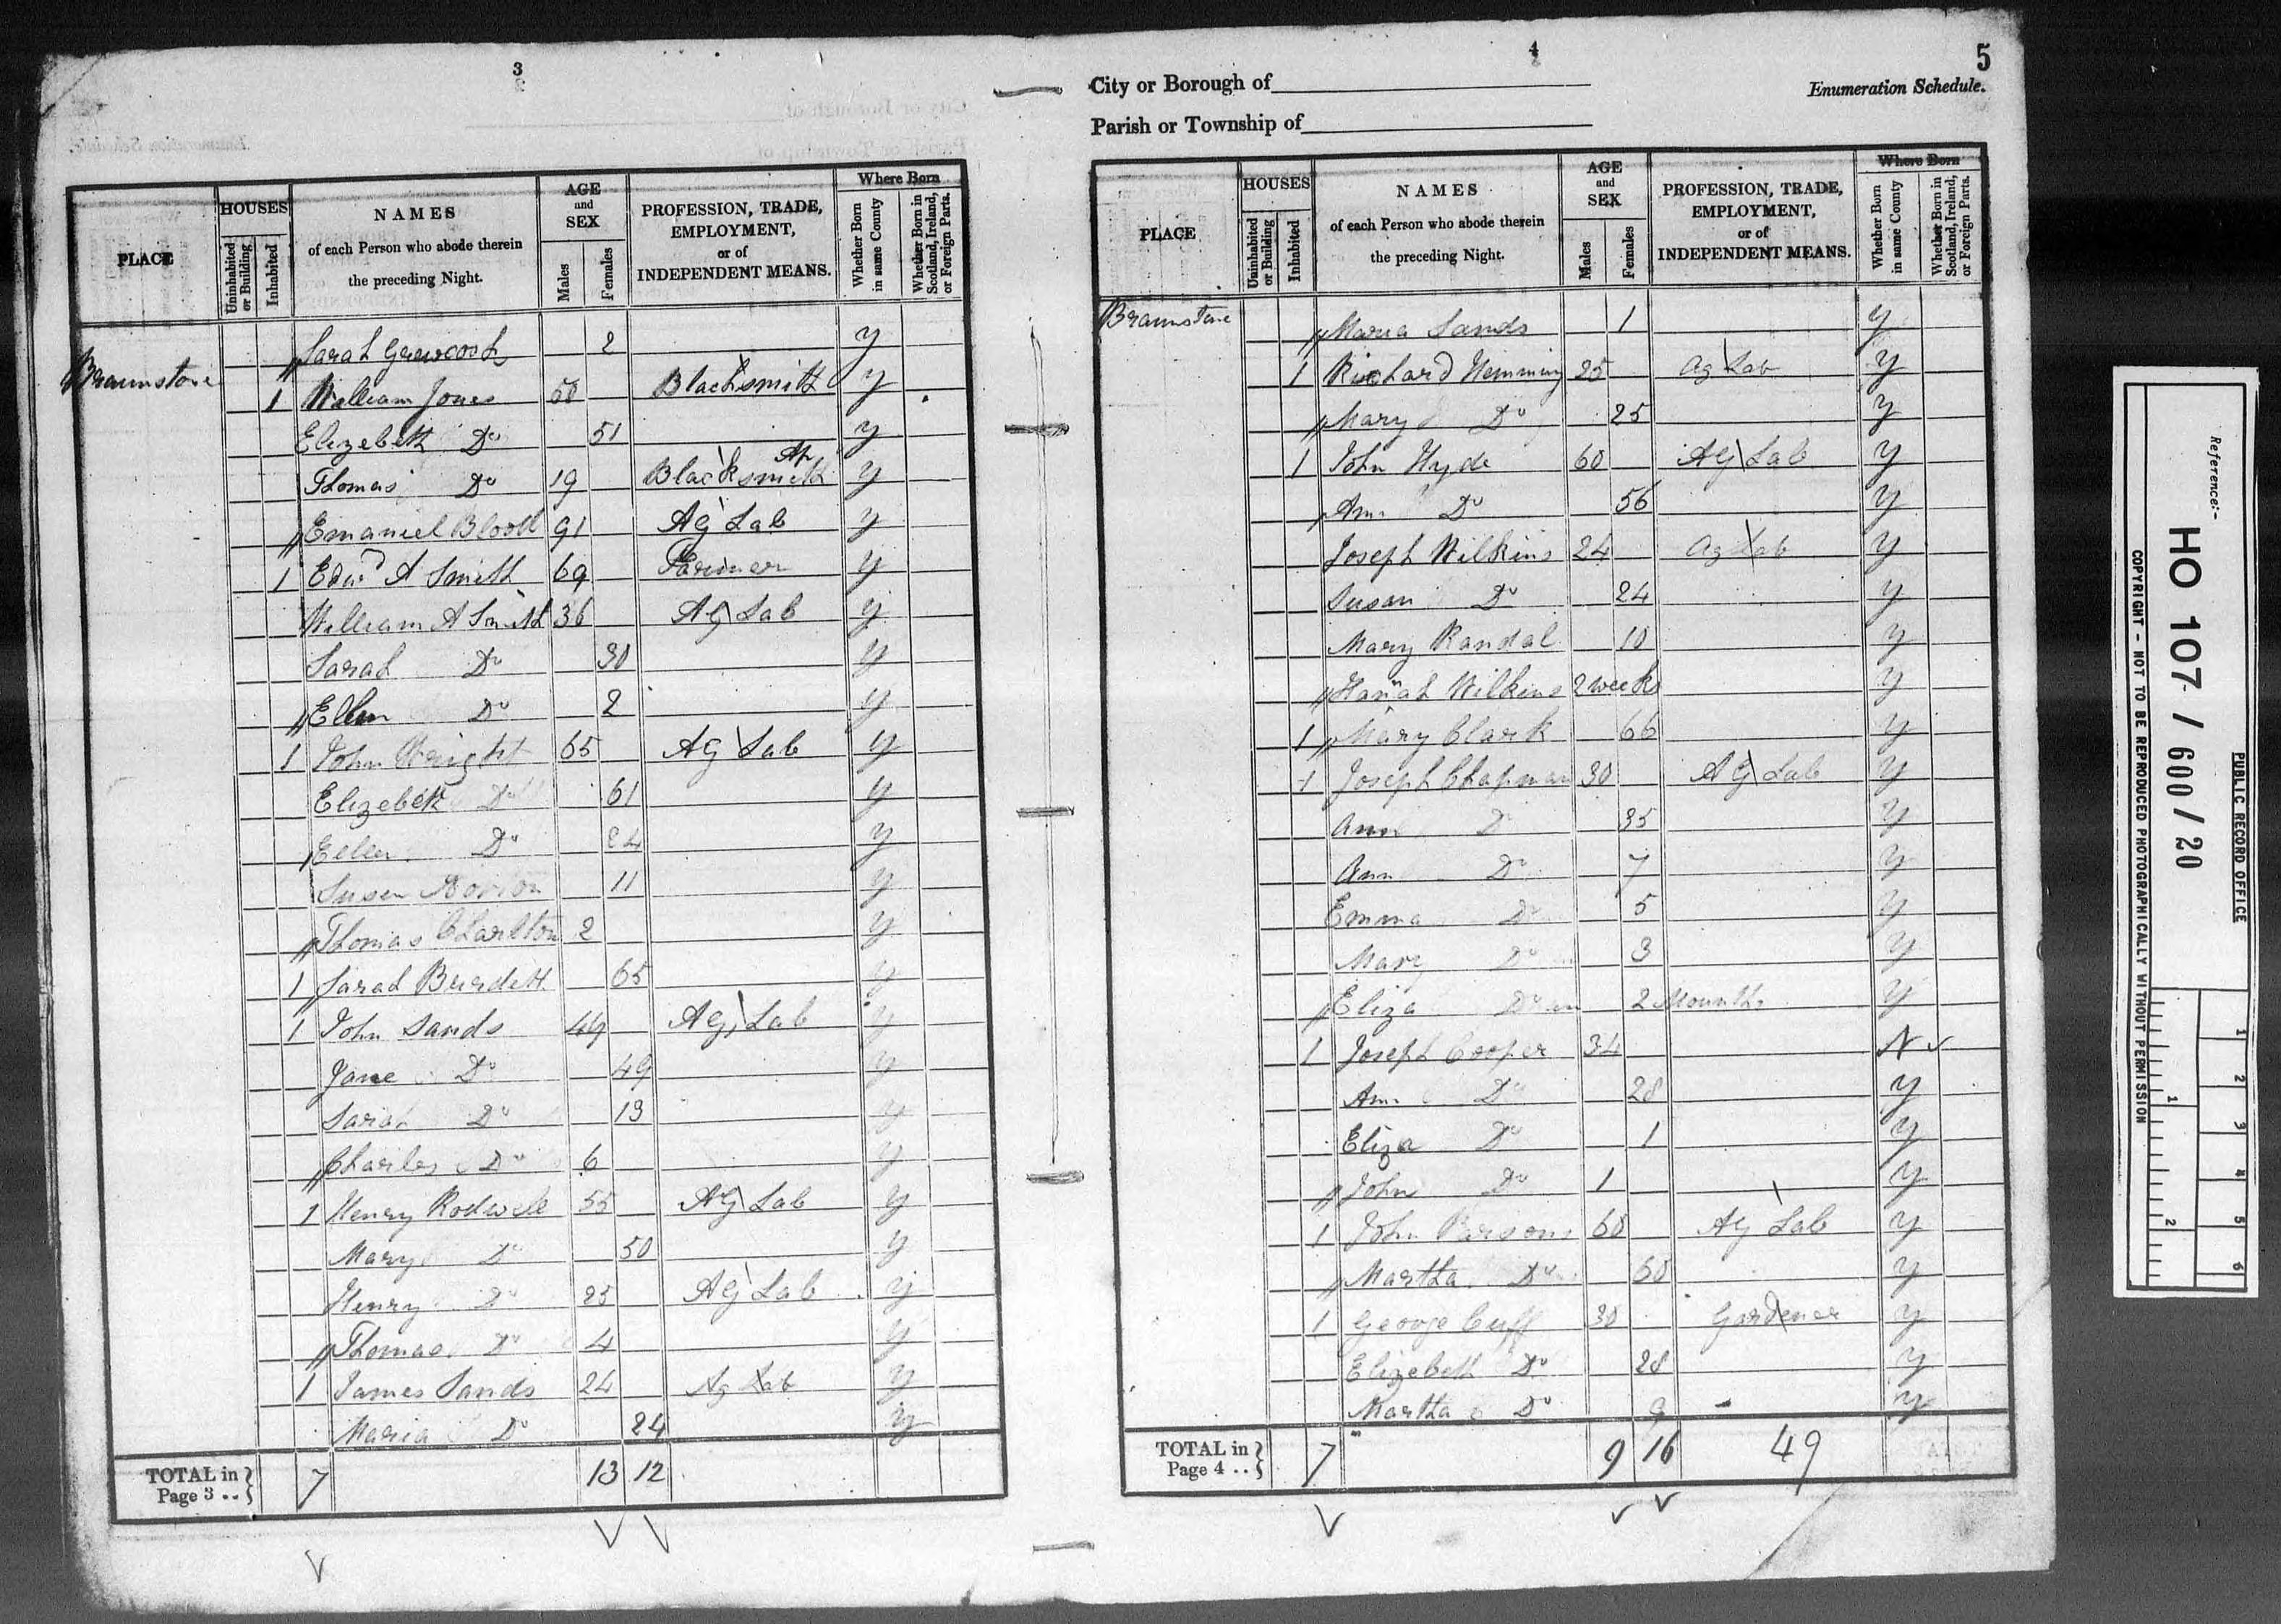 3
PLACE
HOUSES
Uninhabited or Building
Inhabited
NAMES
of each Person who abode therein
the preceding Night.
AGE
and
SEX
Males
Females
PROFESSION, TRADE,
EMPLOYMENT,
or of
INDEPENDENT MEANS.
Where Born
Whether Born in same County
Whether Born in Scotland, Ireland, or Foreign Parts.
Sarah 2 y
Braunstone 1 William Jones 50 Blacksmith y
Elizebeth Do 51 y
Thomas Do 19 Blacksmith Ap y
Emaniel Blood 91 Ag Lab y
1 Edwd A Smith 69 Farmer y
William A Smith 36 Ag Lab y
Sarah Do 30 y
Ellen Do 2 y
1 John Wright 65 AG Lab y
Elizebeth Do 61 y
Ellen Do 24 y
Susan 11 y
Thomas Charlton 2 y
1 Sarah Burdett 65 y
1 John Sands 44 AG Lab y
Jane Do 49 y
Sarah Do 13 y
Charles Do 6 y
1 Henry Rodwell 55 AG Lab y
Mary Do 50 y
Henry Do 25 AG Lab y
Thomas Do 4 y
1 James Sands 24 Ag Lab y
Maria Do 24 y
TOTAL in Page 3 .. 7 13 12
4
5
City or Borough of
Enumeration Schedule.
Parish or Township of
PLACE
HOUSES
Uninhabited or Building
Inhabited
NAMES
of each Person who abode therein
the preceding Night.
AGE
and
SEX
Males
Females
PROFESSION, TRADE,
EMPLOYMENT,
or of
INDEPENDENT MEANS.
Where Born
Whether Born in same County
Whether Born in Scotland, Ireland, or Foreign Parts.
Braunstone Maria Sands 1 y
1 Richard Hemming 25 Ag Lab y
Mary Do 25 y
1 John Hyde 60 AG Lab y
Ann Do 56 y
Joseph Wilkins 24 Ag Lab y
Susan Do 24 y
Mary Randal 10 y
Hannah Wilkins 2 weeks y
1 Mary Clark 66 y
1 Joseph Chapman 30 AG Lab y
Ann Do 35 y
Ann Do 7 y
Emma Do 5 y
Mary Do 3 y
Eliza Do 2 Mounths y
1 Joseph Cooper 34 N
Ann Do 28 y
Eliza Do 1 y
John Do 1 y
1 John Parsons 60 AG Lab y
Martha Do 50 y
1 George Cuff 30 Gardener y
Elizebeth Do 28 y
Martha Do 9 y
TOTAL in Page 4 .. 7 9 16 49
Reference:-
HO 107 / 600 / 20
PUBLIC RECORD OFFICE
COPYRIGHT - NOT TO BE REPRODUCED PHOTOGRAPHICALLY WITHOUT PERMISSION
1 2 3 4 5 6
1 2